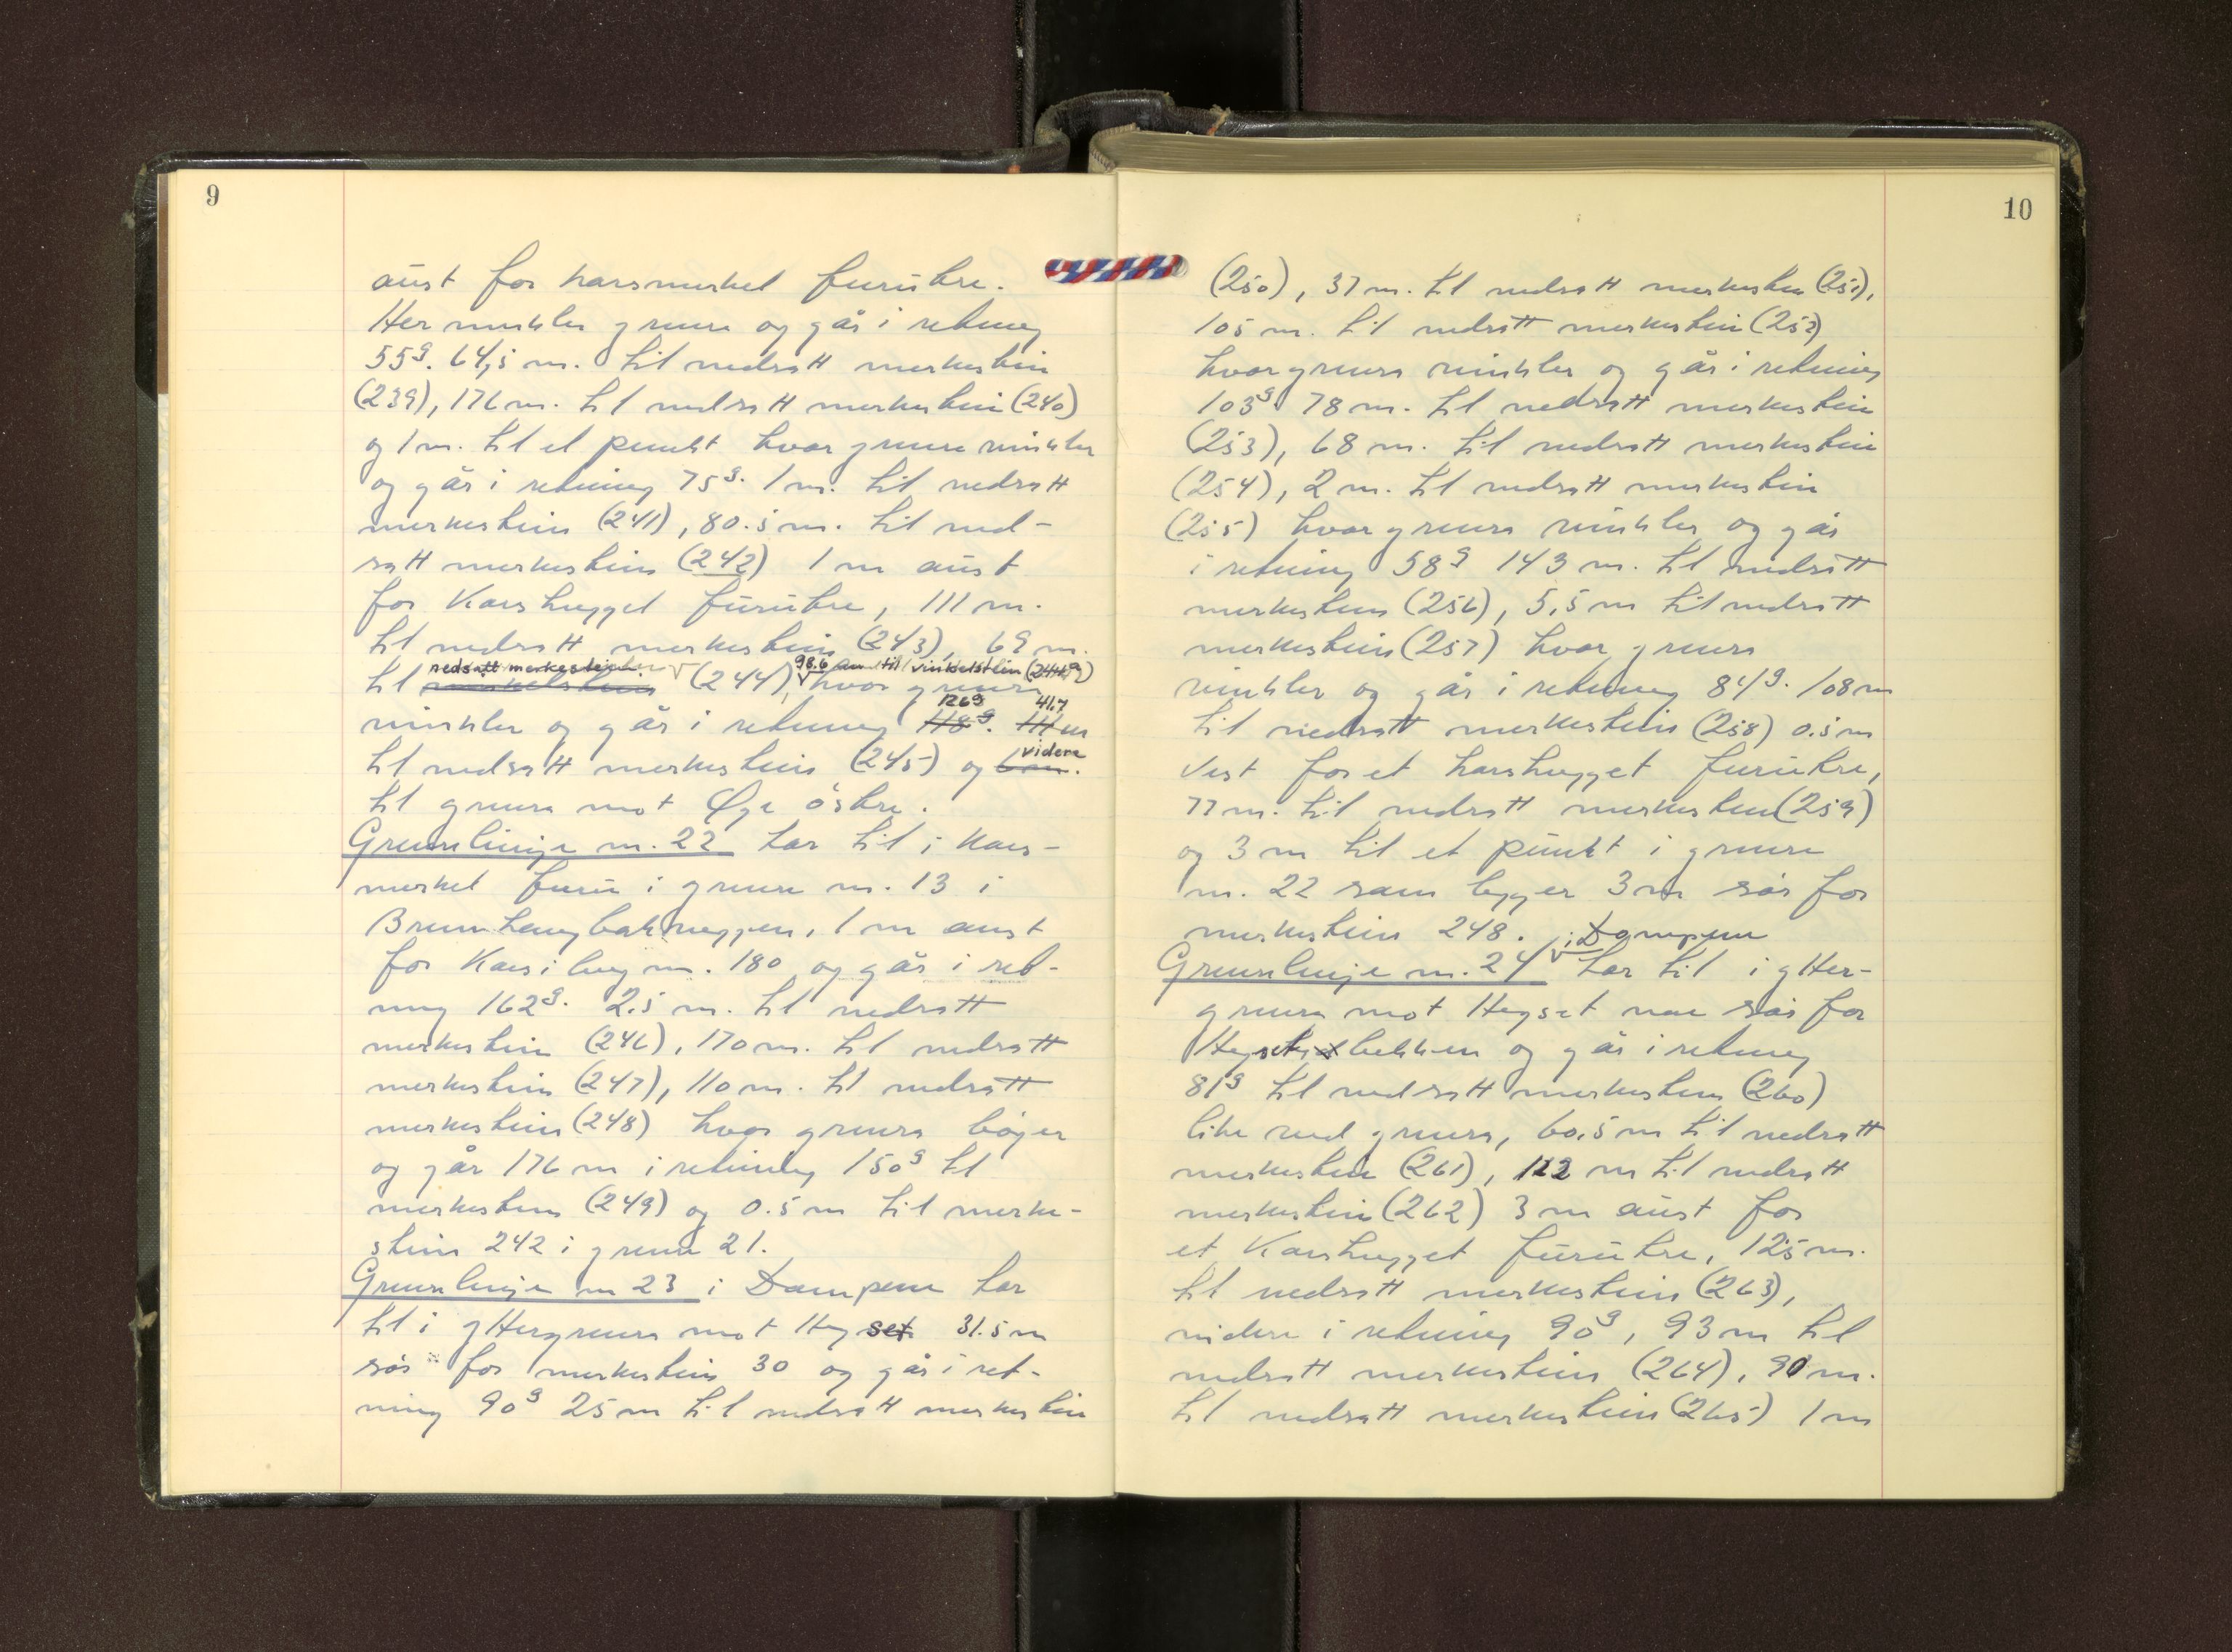 9
aust for karsmerket furutre.
Her vinkler grensa og går i retning
55g. 64,5 m. til nedsatt merkestein
(239), 176 m. til nedsatt merkestein (240)
og 1 m. til et punkt hvor grensa vinkler
og går i retning 75g. 1 m. til nedsatt
merkestein (241), 80.5 m. til ned-
satt merkestein (242) 1 m aust
for karshugget furutre, 111 m.
til nedsatt merkestein (243), 69 m.
nedsatt merkestein 98.6 m til vinkelstein (244a)
til vinkelstein (244), hvor grensa
126g 41.7
vinkler og går i retning 118g. 111 m
videre
til nedsatt merkestein (245) og 6 m.
til grensa mot Øye østre.
Grenselinje nr. 22 tar til i kars-
merket furu i grense nr. 13 i
Brunhaugbakkneppen, 1 m aust
for Kars i berg nr. 180 og går i ret-
ning 162g. 2.5 m. til nedsatt
merkestein (246), 170 m. til nedsatt
merkestein (247), 110 m. til nedsatt
merkestein (248) hvor grensa bøyer
og går 176 m i retning 150g til
merkestein (249) og 0.5 m til merke-
stein 242 i grense 21.
Grenselinje nr 23 i Dampene tar
til i yttergrensa mot Hegset 31.5 m
sør for merkestein 30 og går i ret-
ning 90g 25 m til nedsatt merkestein
10
(250), 37 m. til nedsatt merkestein (251),
105 m. til nedsatt merkestein (252)
hvor grensa vinkler og går i retning
103g 78 m. til nedsatt merkestein
(253), 68 m. til nedsatt merkestein
(254), 2 m. til nedsatt merkestein
(255) hvor grensa vinkler og går
i retning 58g 143 m. til nedsatt
merkestein (256), 5,5 m til nedsatt
merkestein (257) hvor grensa
vinkler og går i retning 84g. 108 m
til nedsatt merkestein (258) 0.5 m
vest for et karshugget furutre,
77 m. til nedsatt merkestein (259)
og 3 m til et punkt i grense
nr. 22 som ligger 3 m sør for
merkestein 248.
i Dampene
Grenselinje nr. 24 tar til i ytter-
grensa mot Hegset noe sør for
Hegsetbekken og går i retning
81g til nedsatt merkestein (260)
like ved grensa, 60,5 m til nedsatt
merkestein (261), 122 m til nedsatt
merkestein (262) 3 m aust for
et karshugget furutre, 125 m.
til nedsatt merkestein (263),
videre i retning 90g, 93 m til
nedsatt merkestein (264), 90 m.
til nedsatt merkestein (265) 1 m